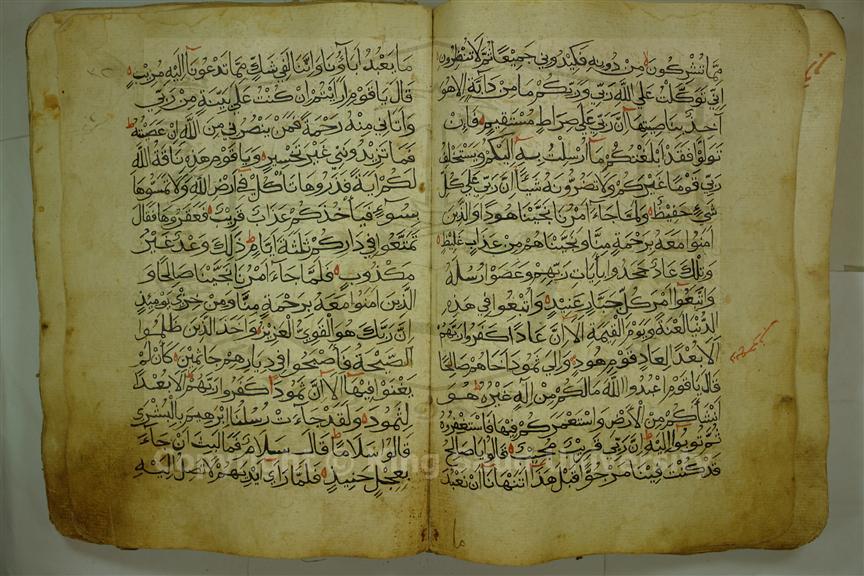 مما تشركون من دونه فكيدوني جميعا ثم لا تنظرون
اني توكلت على الله ربي وربكم ما من دابة الا هو
اخذ بناصيتها ان ربي على صراط مستقيم فان
تولوا فقد ابلغتكم ما ارسلت به اليكم ويستخلف
ربي قوما غيركم ولا تضرونه شيئا ان ربي على كل
شيء حفيظ ولما جاء امرنا نجينا هودا والذين
امنوا معه برحمة منا ونجيناهم من عذاب غليظ
وتلك عاد جحدوا بايات ربهم وعصوا رسله
واتبعوا امر كل جبار عنيد واتبعوا في هذه
الدنيا لعنة ويوم القيمة الا ان عادا كفروا ربهم
الا بعدا لعاد قوم هود والى ثمود اخاهم صالحا
قال يا قوم اعبدوا الله مالكم من اله غيره هو
انشاكم من الارض واستعمركم فيها فاستغفروه
ثم توبوا اليه ان ربي قريب مجيب قالوا يا صالح
قد كنت فينا مرجوا قبل هذا اتنهانا ان نعبد
ما
ما يعبد اباؤنا واننا لفي شك مما تدعونا اليه مريب
قال يا قوم ارايتم ان كنت على بينة من ربي
واتاني منه رحمة فمن ينصرني من الله ان عصيته
فما تزيدونني غير تخسير ويا قوم هذه ناقة الله
لكم اية فذروها تاكل في ارض الله ولا تمسوها
بسوء فياخذكم عذاب قريب فعقروها فقال
تمتعوا في داركم ثلثة ايام ذلك وعد غير
مكذوب فلما جاء امرنا نجينا صالحا و
الذين امنوا معه برحمة منا ومن خزي يومئذ
ان ربك هو القوي العزيز واخذ الذين ظلموا
الصيحة فاصبحوا في ديارهم جاثمين كان لم
يغنوا فيها الا ان ثمود كفروا ربهم الا بعدا
لثمود ولقد جاءت رسلنا ابرهيم بالبشرى
قالوا سلاما قال سلام فما لبث ان جاء
بعجل حنيذ فلما راى ايديهم لا تصل اليه